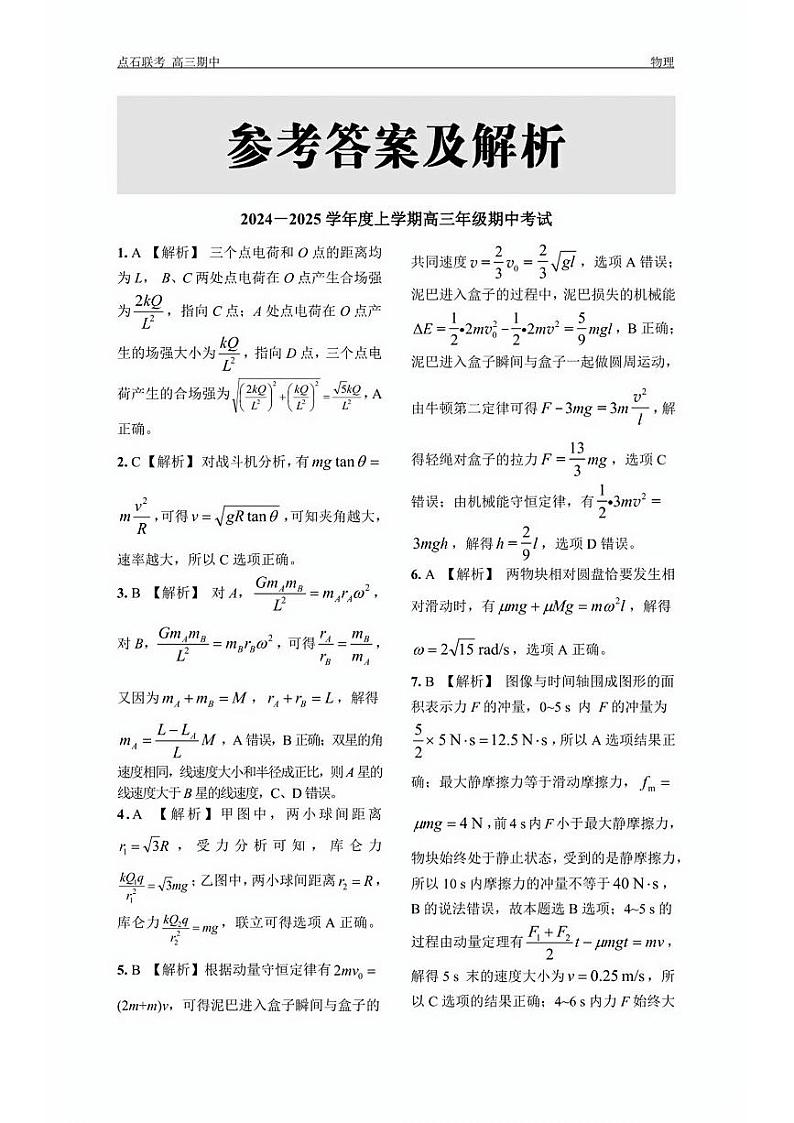 点石联考 高三期中 物理
参考答案及解析
2024－2025 学年度上学期高三年级期中考试
1. A 【解析】 三个点电荷和 O 点的距离均
为 L， B、C 两处点电荷在 O 点产生合场强
为 \frac{2kQ}{L^2}，指向 C 点；A 处点电荷在 O 点产
生的场强大小为 \frac{kQ}{L^2}，指向 D 点，三个点电
荷产生的合场强为 \sqrt{\left(\frac{2kQ}{L^2}\right)^2+\left(\frac{kQ}{L^2}\right)^2}=\frac{\sqrt{5}kQ}{L^2}，A
正确。
2. C【解析】对战斗机分析，有 mg tan θ =
m\frac{v^2}{R}，可得 v = \sqrt{gR tan θ}，可知夹角越大，
速率越大，所以 C 选项正确。
3. B 【解析】 对 A，\frac{Gm_Am_B}{L^2} = m_Ar_Aω^2，
对 B，\frac{Gm_Am_B}{L^2} = m_Br_Bω^2，可得 \frac{r_A}{r_B} = \frac{m_B}{m_A}，
又因为 m_A + m_B = M，r_A + r_B = L，解得
m_A = \frac{L - L_A}{L}M，A 错误，B 正确；双星的角
速度相同，线速度大小和半径成正比，则 A 星的
线速度大于 B 星的线速度，C、D 错误。
4. A 【解析】甲图中，两小球间距离
r_1 = \sqrt{3}R，受力分析可知，库仑力
\frac{kQ_1q}{r_1^2} = \sqrt{3}mg；乙图中，两小球间距离 r_2 = R，
库仑力 \frac{kQ_2q}{r_2^2} = mg，联立可得选项 A 正确。
5. B 【解析】根据动量守恒定律有 2mv_0 =
(2m+m)v，可得泥巴进入盒子瞬间与盒子的
共同速度 v = \frac{2}{3}v_0 = \frac{2}{3}\sqrt{gl}，选项 A 错误；
泥巴进入盒子的过程中，泥巴损失的机械能
ΔE = \frac{1}{2}•2mv_0^2 - \frac{1}{2}•2mv^2 = \frac{5}{9}mgl，B 正确；
泥巴进入盒子瞬间与盒子一起做圆周运动，
由牛顿第二定律可得 F - 3mg = 3m\frac{v^2}{l}，解
得轻绳对盒子的拉力 F = \frac{13}{3}mg，选项 C
错误；由机械能守恒定律，有 \frac{1}{2}•3mv^2 =
3mgh，解得 h = \frac{2}{9}l，选项 D 错误。
6. A 【解析】 两物块相对圆盘恰要发生相
对滑动时，有 μmg + μMg = mω^2l，解得
ω = 2\sqrt{15} rad/s，选项 A 正确。
7. B 【解析】 图像与时间轴围成图形的面
积表示力 F 的冲量，0~5 s 内 F 的冲量为
\frac{5}{2} × 5 N·s = 12.5 N·s，所以 A 选项结果正
确；最大静摩擦力等于滑动摩擦力，f_m =
μmg = 4 N，前 4 s 内 F 小于最大静摩擦力，
物块始终处于静止状态，受到的是静摩擦力，
所以 10 s 内摩擦力的冲量不等于 40 N·s，
B 的说法错误，故本题选 B 选项；4~5 s 的
过程由动量定理有 \frac{F_1 + F_2}{2}t - μmgt = mv，
解得 5 s 末的速度大小为 v = 0.25 m/s，所
以 C 选项的结果正确；4~6 s 内力 F 始终大